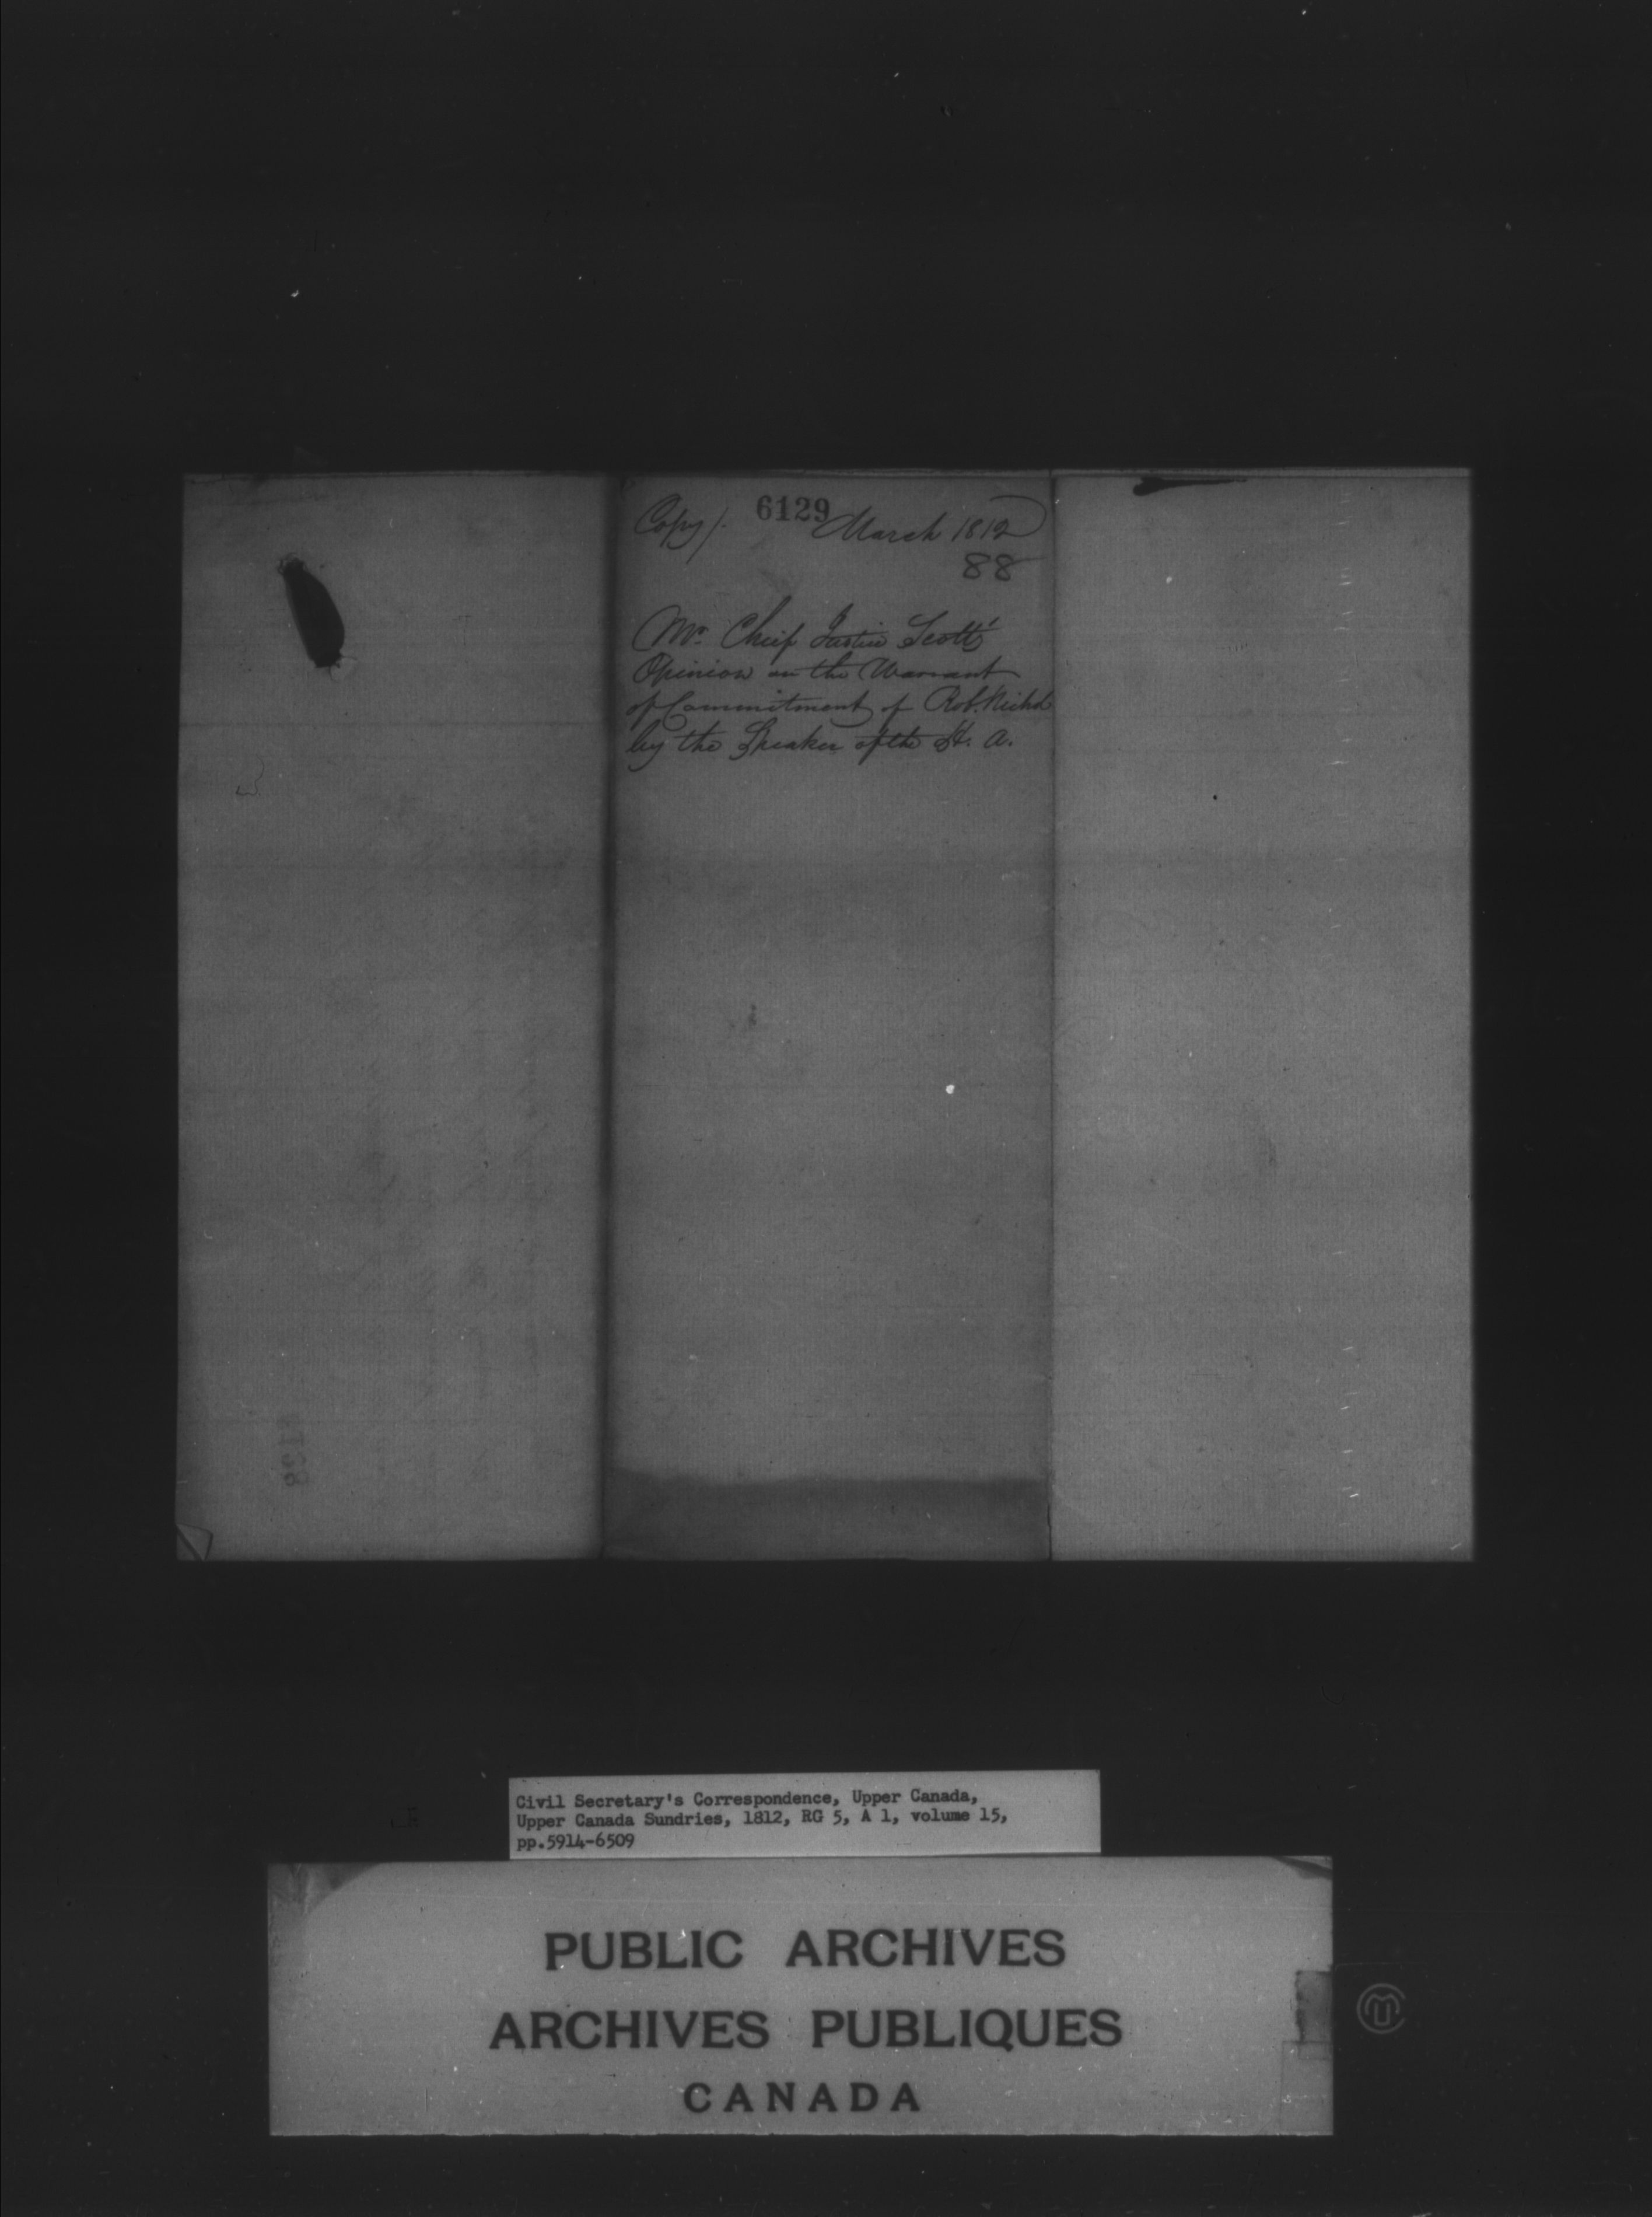 6129
Copy/. March 1812
88
Mr. Chief Justice Scott's
Opinion on the Warrant
of Commitment of Rob. Nichol
by the Speaker of the H. A.
Civil Secretary's Correspondence, Upper Canada,
Upper Canada Sundries, 1812, RG 5, A 1, volume 15,
pp.5914-6509
PUBLIC ARCHIVES
ARCHIVES PUBLIQUES
CANADA